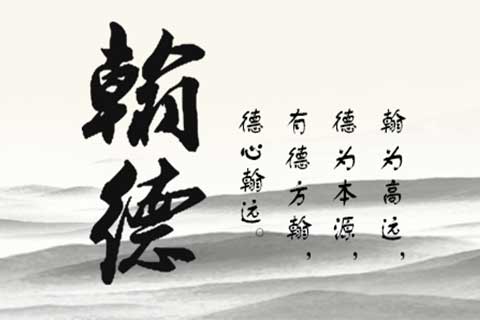 翰德
翰为高远，
德为本源，
有德方翰，
德心翰远。